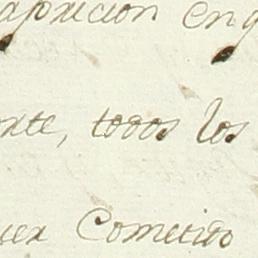 aparicion en q
rte, todos los
cer Cometido